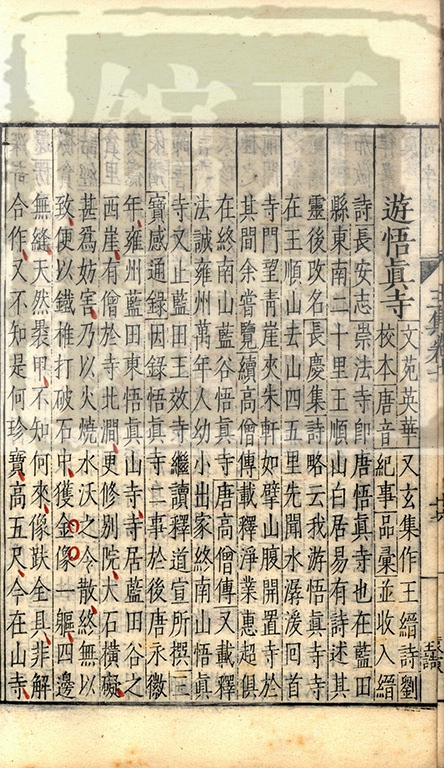 遊悟眞寺
文苑英華又玄集作王縉詩劉
校本唐音紀事品彙並收入縉
詩長安志崇法寺卽唐悟眞寺也在藍田
縣東南二十里王順山白居易有詩述其
靈後改名長慶集詩略云我游悟眞寺寺
在王順山去山四五里先聞水潺湲回首
寺門望青崖夾朱軒如擘山腹開置寺於
其間余嘗覽續高僧傳載釋淨業惠超俱
在終南山藍谷悟眞寺唐高僧傳又載釋
法誠雍州萬年人幼小出家終南山悟眞
寺又止藍田王效寺繼讀釋道宣所撰三
寶感通錄因錄悟眞寺二事於後唐永徽
年雍州藍田東悟眞山寺寺居藍田谷之
西崖有僧於寺北澗更修別院大石橫礙
甚爲妨害乃以火燒水沃之令散終無以
致便以鐵椎打破石中獲金像一軀四邊
無縫天然褁甲不知何來像趺全具非解
合作又不知是何珍寶高五尺今在山寺